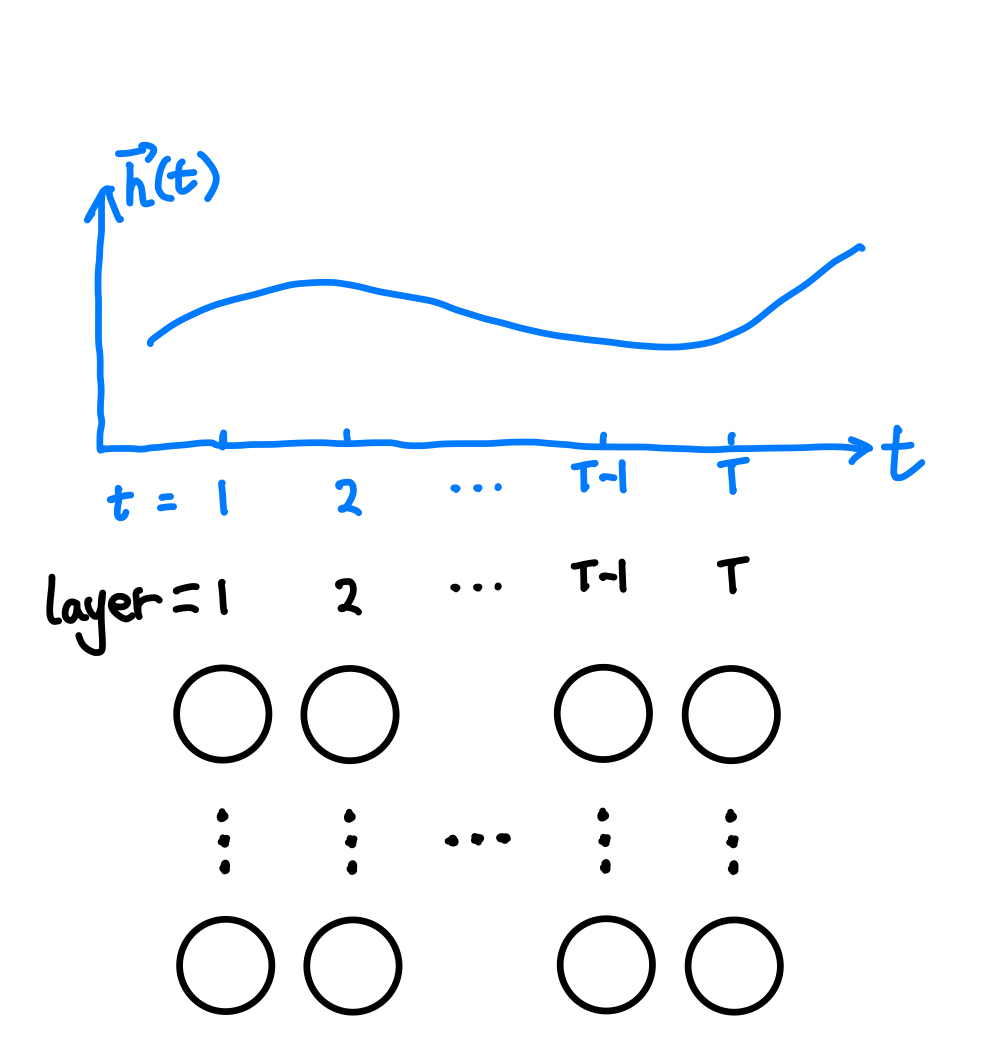 h⃗(t)
t
t = 1 2 ... T-1 T
layer = 1 2 ... T-1 T